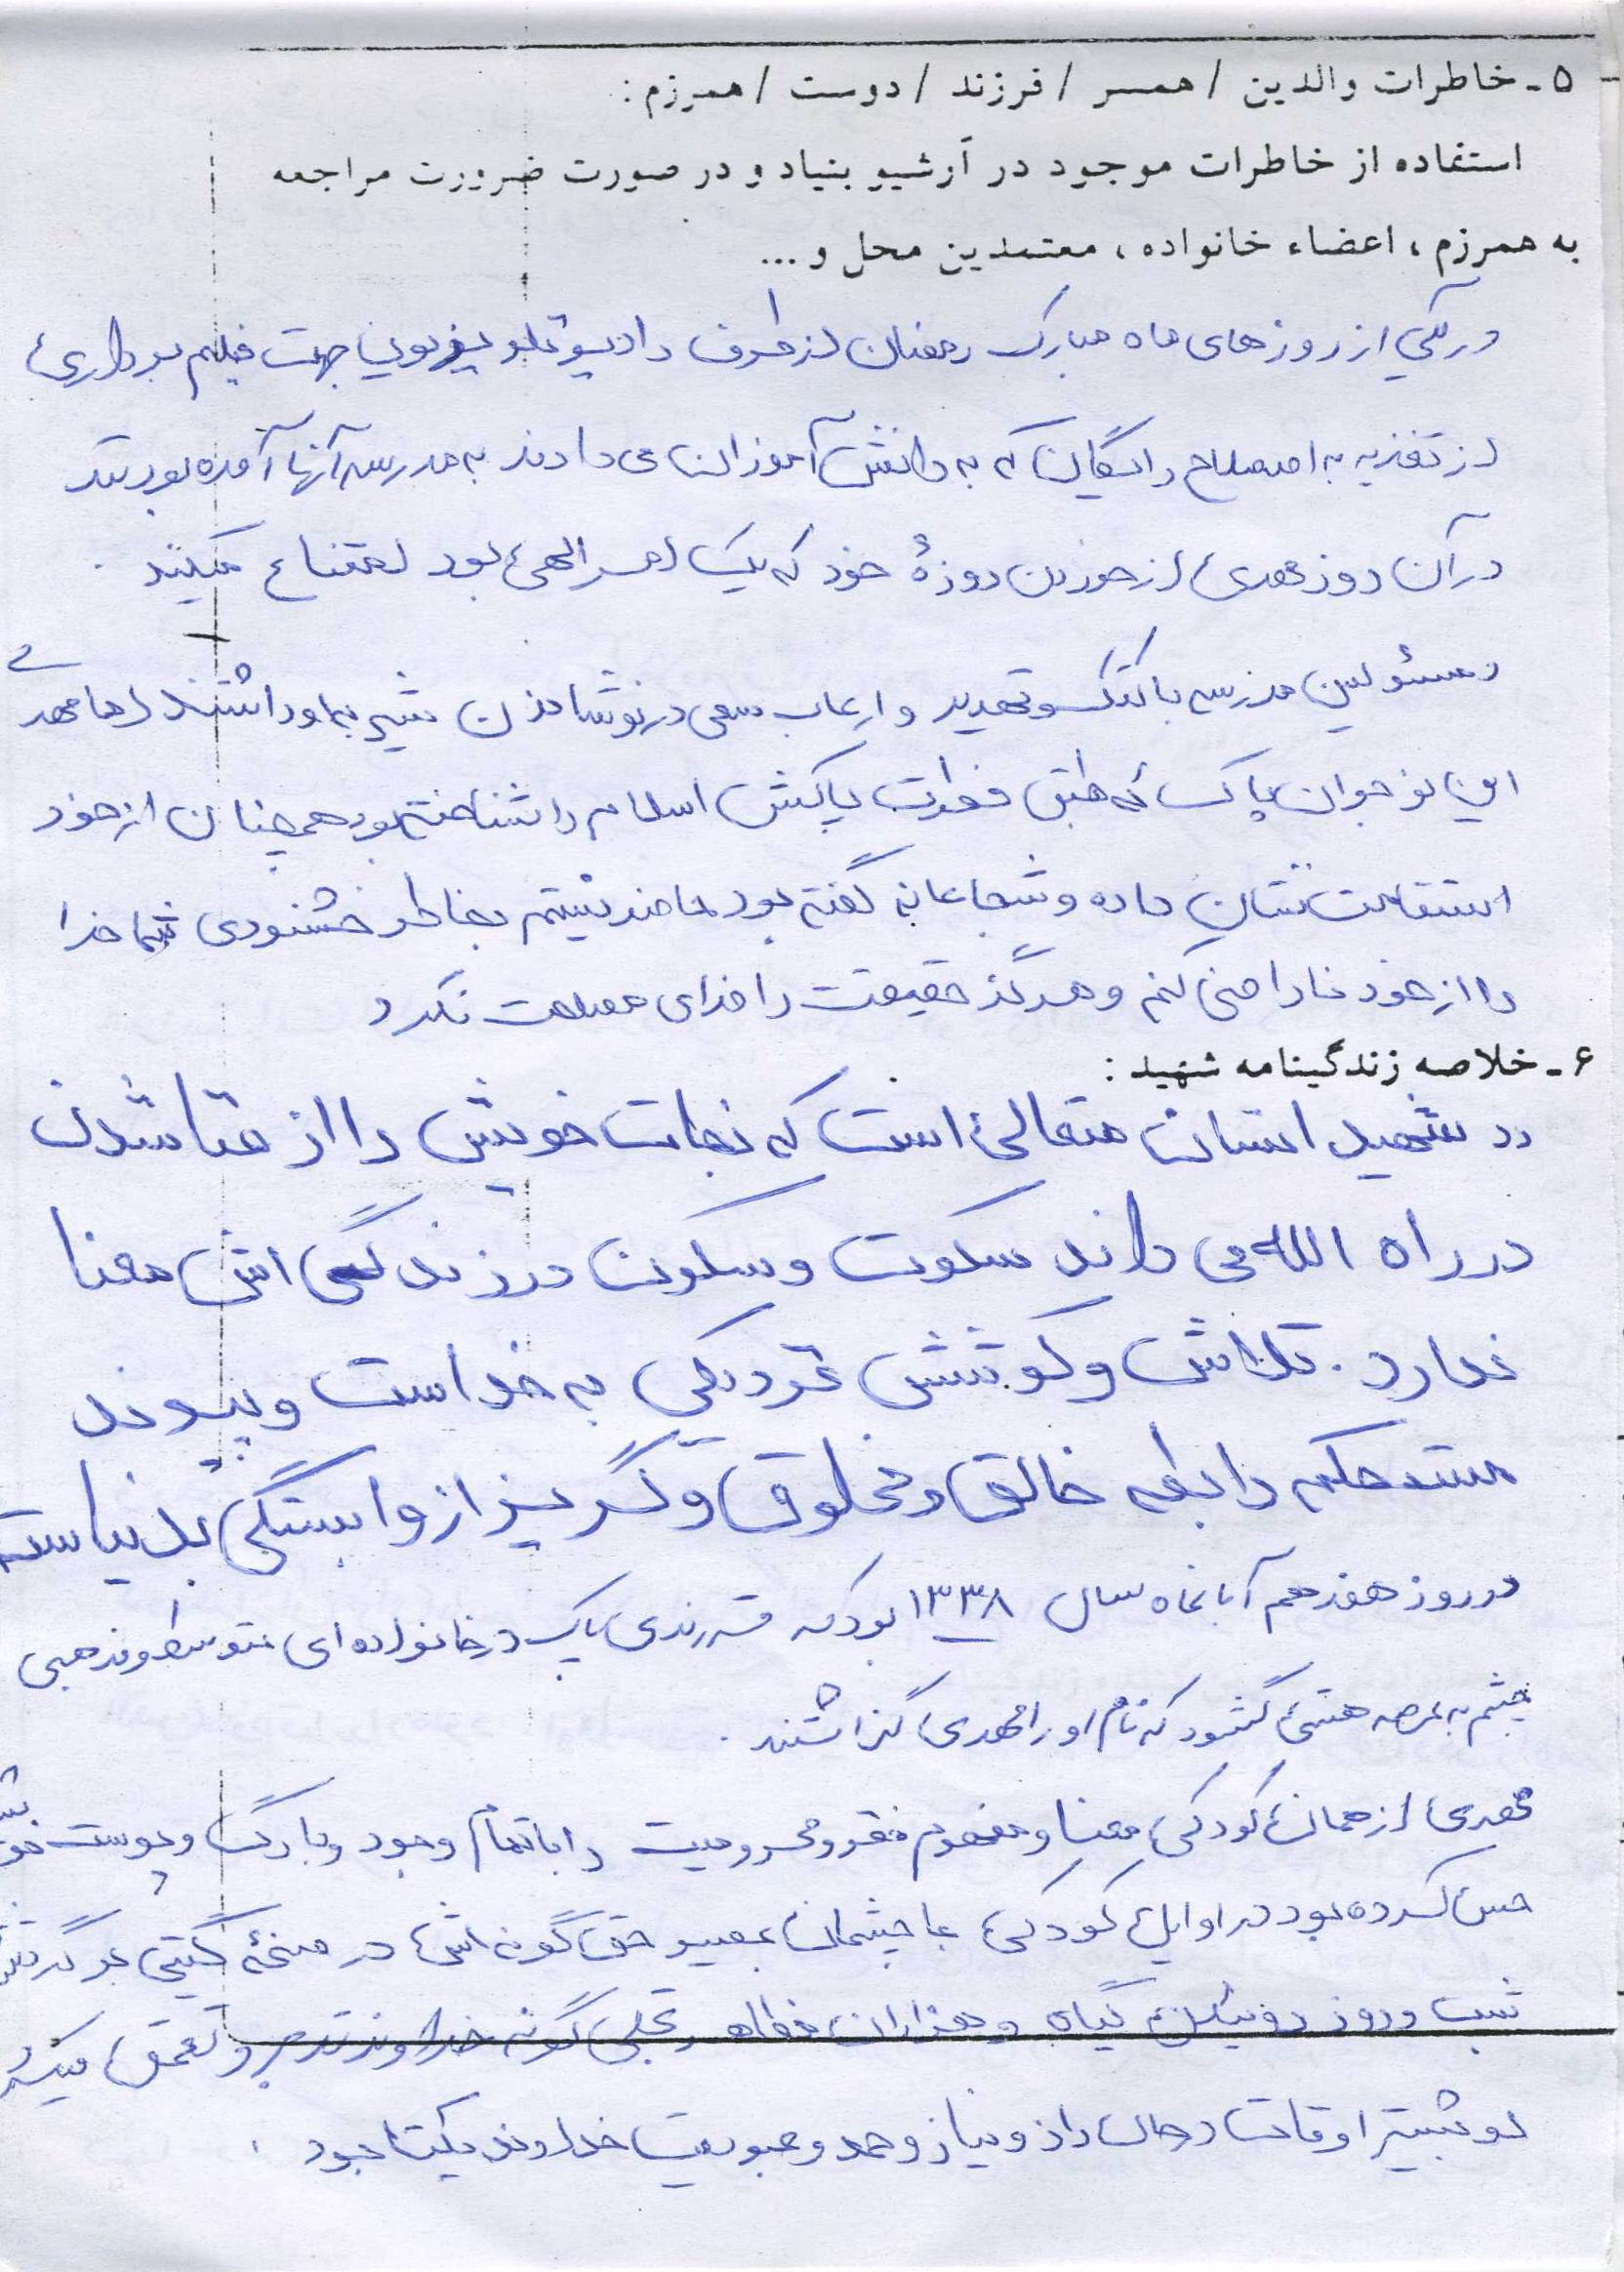 ۵ - خاطرات والدین / همسر / فرزند / دوست / همرزم :
استفاده از خاطرات موجود در آرشیو بنیاد و در صورت ضرورت مراجعه
به همرزم ، اعضاء خانواده ، معتمدین محل و ...
در یکی از روزهای ماه مبارک رمضان از طرف رادیو تلویزیون جهت فیلم برداری
از تغذیه به اصطلاح رایگان که به دانش آموزان می دادند به مدرسه آنها آمده بودند
در آن روز مهدی از خوردن روزهٔ خود که یک امر الهی بود امتناع میکند .
مسئولین مدرسه با کتک و تهدید و ارعاب سعی در نوشاندن شیر به او داشتند اما مهدی
این نوجوان پاک که طبق فطرت پاکش اسلام را شناخته بود همچنان از خود
استقامت نشان داده و شجاعانه گفته بود حاضر نیستم بخاطر خشنودی شما خدا
را از خود ناراضی کنم و هرگز حقیقت را فدای مصلحت نکرد
۶ - خلاصه زندگینامه شهید :
رر شهید انسان متعالی است که نجات خویش را از فنا شدن
در راه الله می داند سکوت و سکون در زندگی اش معنا
ندارد . تلاش و کوشش نزدیکی به خداست و پیوند
مستحکم رابطه خالق و مخلوق و گریز از وابستگی بدنیاست
در روز هفدهم آبانماه سال ۱۳۳۸ بود که فرزندی پاک در خانواده ای متوسط و مذهبی
چشم به عرصه هستی گشود که نام او را مهدی گذاشتند .
مهدی از همان کودکی معنا و مفهوم فقر و محرومیت را با تمام وجود و با رگ و پوست
حس کرده بود در اوایل کودکی با چشمان بصیر حق گونه اش در صحنهٔ گیتی بر گردش
شب و روز گیاه و هزاران مظاهر تجلی گونه خداوند تدبر و تعمق میکرد
او بیشتر اوقات در حال راز و نیاز و حمد و عبودیت خداوند یکتا بود .